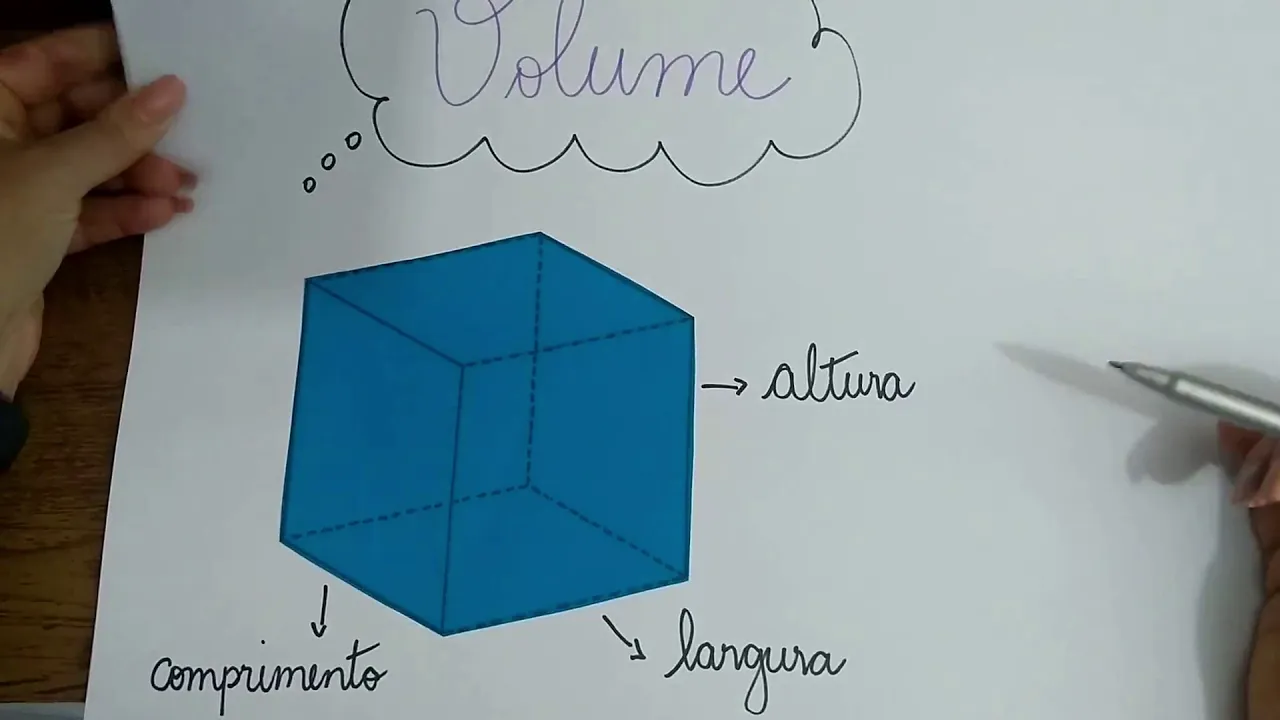 Volume
altura
largura
comprimento